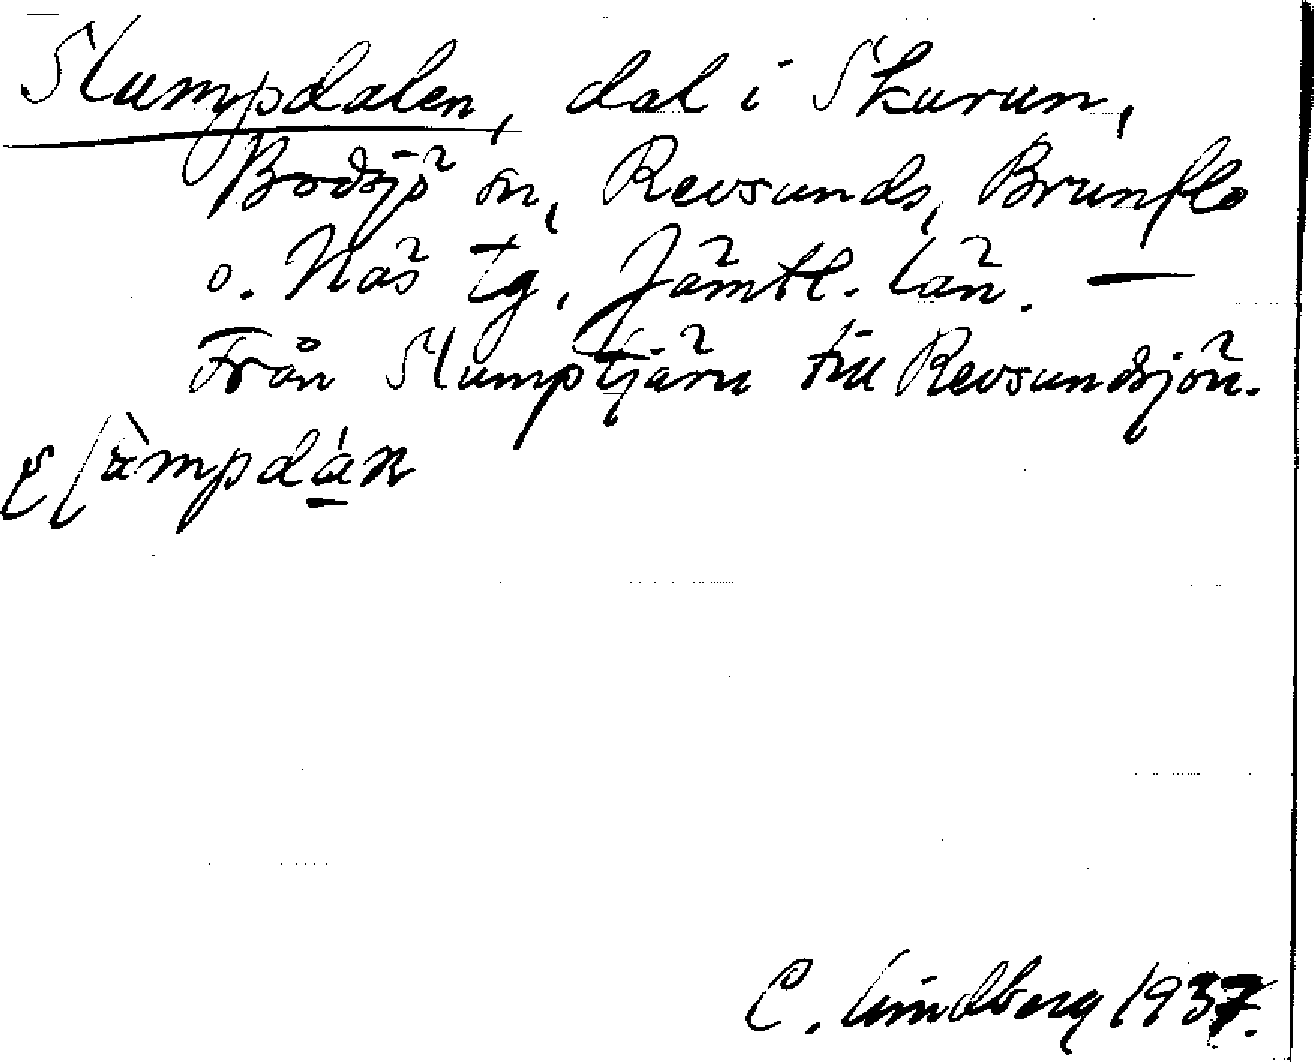 Slumpdalen, dal i Skurun,
Bodsjö sn, Revsunds, Brunflo
o. Näs tg, Jämtl. län. —
Från Slumptjärn till Revsundsjön.
C. Lindberg 1937.